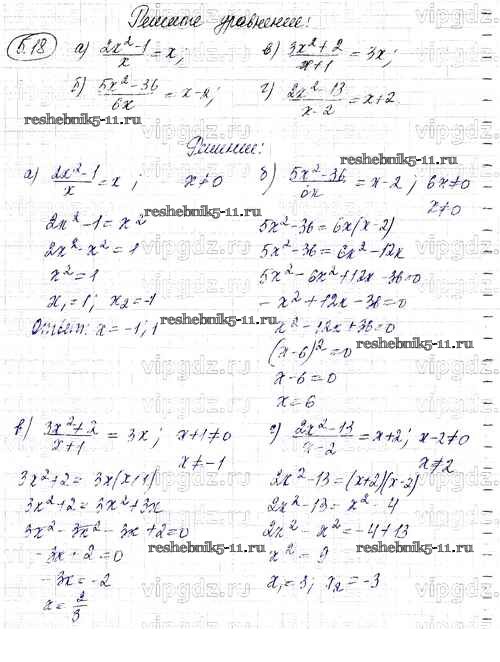 Решите уравнение:
5.18 а) (2x²-1)/x = x; в) (3x²+2)/(x+1) = 3x;
б) (5x²-36)/6x = x-2; г) (2x²-13)/(x-2) = x+2.
reshebnik5-11.ru reshebnik5-11.ru
Решение:
а) (2x²-1)/x = x; x≠0
2x²-1=x²
2x²-x²=1
x²=1
x₁=1; x₂=-1
Ответ: x=-1; 1
б) (5x²-36)/6x = x-2; 6x≠0
x≠0
5x²-36=6x(x-2)
5x²-36=6x²-12x
5x²-6x²+12x-36=0
-x²+12x-36=0
x²-12x+36=0
(x-6)²=0
x-6=0
x=6
reshebnik5-11.ru
reshebnik5-11.ru
в) (3x²+2)/(x+1) = 3x; x+1≠0
x≠-1
3x²+2=3x(x+1)
3x²+2=3x²+3x
3x²-3x²-3x+2=0
-3x+2=0
-3x=-2
x=2/3
г) (2x²-13)/(x-2) = x+2; x-2≠0
x≠2
2x²-13=(x+2)(x-2)
2x²-13=x²-4
2x²-x²=-4+13
x²=9
x₁=3; x₂=-3
reshebnik5-11.ru
reshebnik5-11.ru
vipgdz.ru